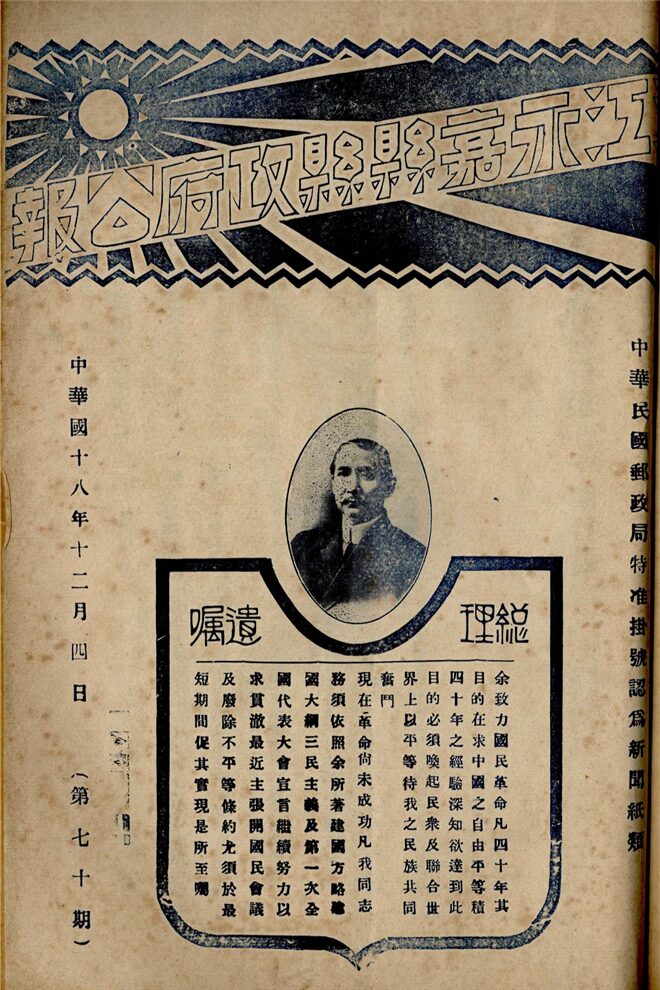 江永嘉縣縣政府公報
中華民國郵政局特准掛號認爲新聞紙類
総理
遺嘱
余致力國民革命凡四十年其
目的在求中國之自由平等積
四十年之經驗深知欲達到此
目的必須喚起民衆及聯合世
界上以平等待我之民族共同
奮鬥
現在革命尚未成功凡我同志
務須依照余所著建國方略建
國大綱三民主義及第一次全
國代表大會宣言繼續努力以
求貫澈最近主張開國民會議
及廢除不平等條約尤須於最
短期間促其實現是所至囑
中華國十八年十二月四日（第七十期）